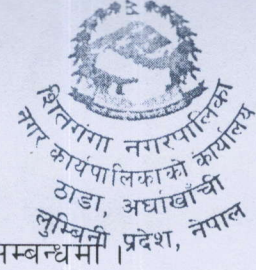 शितगंगा नगरपालिका
नगर कार्यपालिकाको कार्यालय
ठाडा, अर्घाखाँची
लुम्बिनी प्रदेश, नेपाल
सम्बन्धमा ।